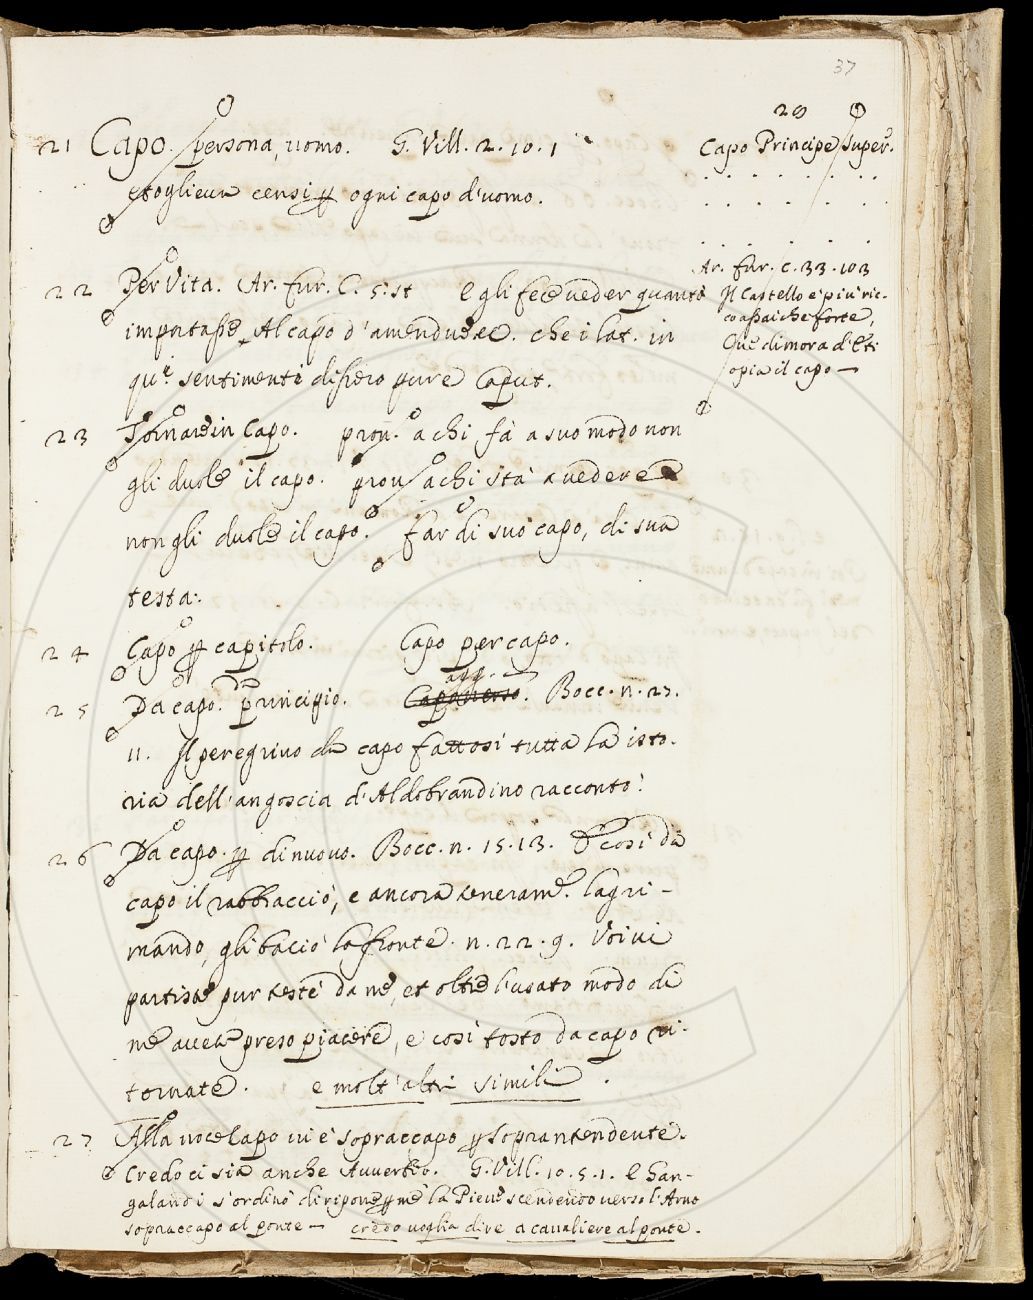 37
21 Capo. persona, uomo. G. Vill. 2. 10. 1
e toglieva censi ꝑ ogni capo d'uomo.
22 Per Vita. Ar. fur. C. 5. st e gli fece veder quanto
importasse Al capo d'amendue che i lat. in
sentimento dissero pure Caput.
23 Tornare in Capo. prov. a chi fà a suo modo non
gli duole il capo. prov a chi stà a vedere
non gli duole il capo. far di suo capo, di sua
testa.
24 Capo ꝑ capitolo. Capo per capo.
25 Da capo. principio. agg. Bocc. n. 27.
11. Il peregrino da capo fattosi tutta la isto.
ria dell'angoscia d'Aldobrandino raccontò.
26 Da capo. ꝑ di nuovo. Bocc. n. 15. 13. E così da
capo il rabbracciò, e ancora teneram. lagri-
mando, gli baciò la fronte. n. 22. 9. Voi vi
partiste pur testè da me, et oltre l'usato modo di
me avete preso piacere, e così tosto da capo ri-
tornate. e molt'altri simili.
27 Alla voce Capo vi è sopraccapo ꝑ soprantendente.
Credo ci sia anche Avverbio. G. Vill. 10. 5. 1. E San-
galandi s'ordinò di riporre la Pieve scendendo verso l'Arno
sopraccapo al ponte — credo voglia dire a cavaliere al ponte.
28
Capo Principe super.
Ar. fur. c. 33. 103
Il Castello è più ric-
co assai che forte,
Ove dimora d'Eti
opia il capo —